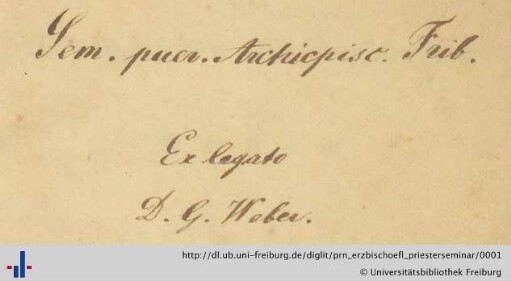 Sem. puer. Archiepisc. Frib.
Ex legato
D. G. Weber.
http://dl.ub.uni-freiburg.de/diglit/prn_erzbischoefl_priesterseminar/0001
© Universitätsbibliothek Freiburg